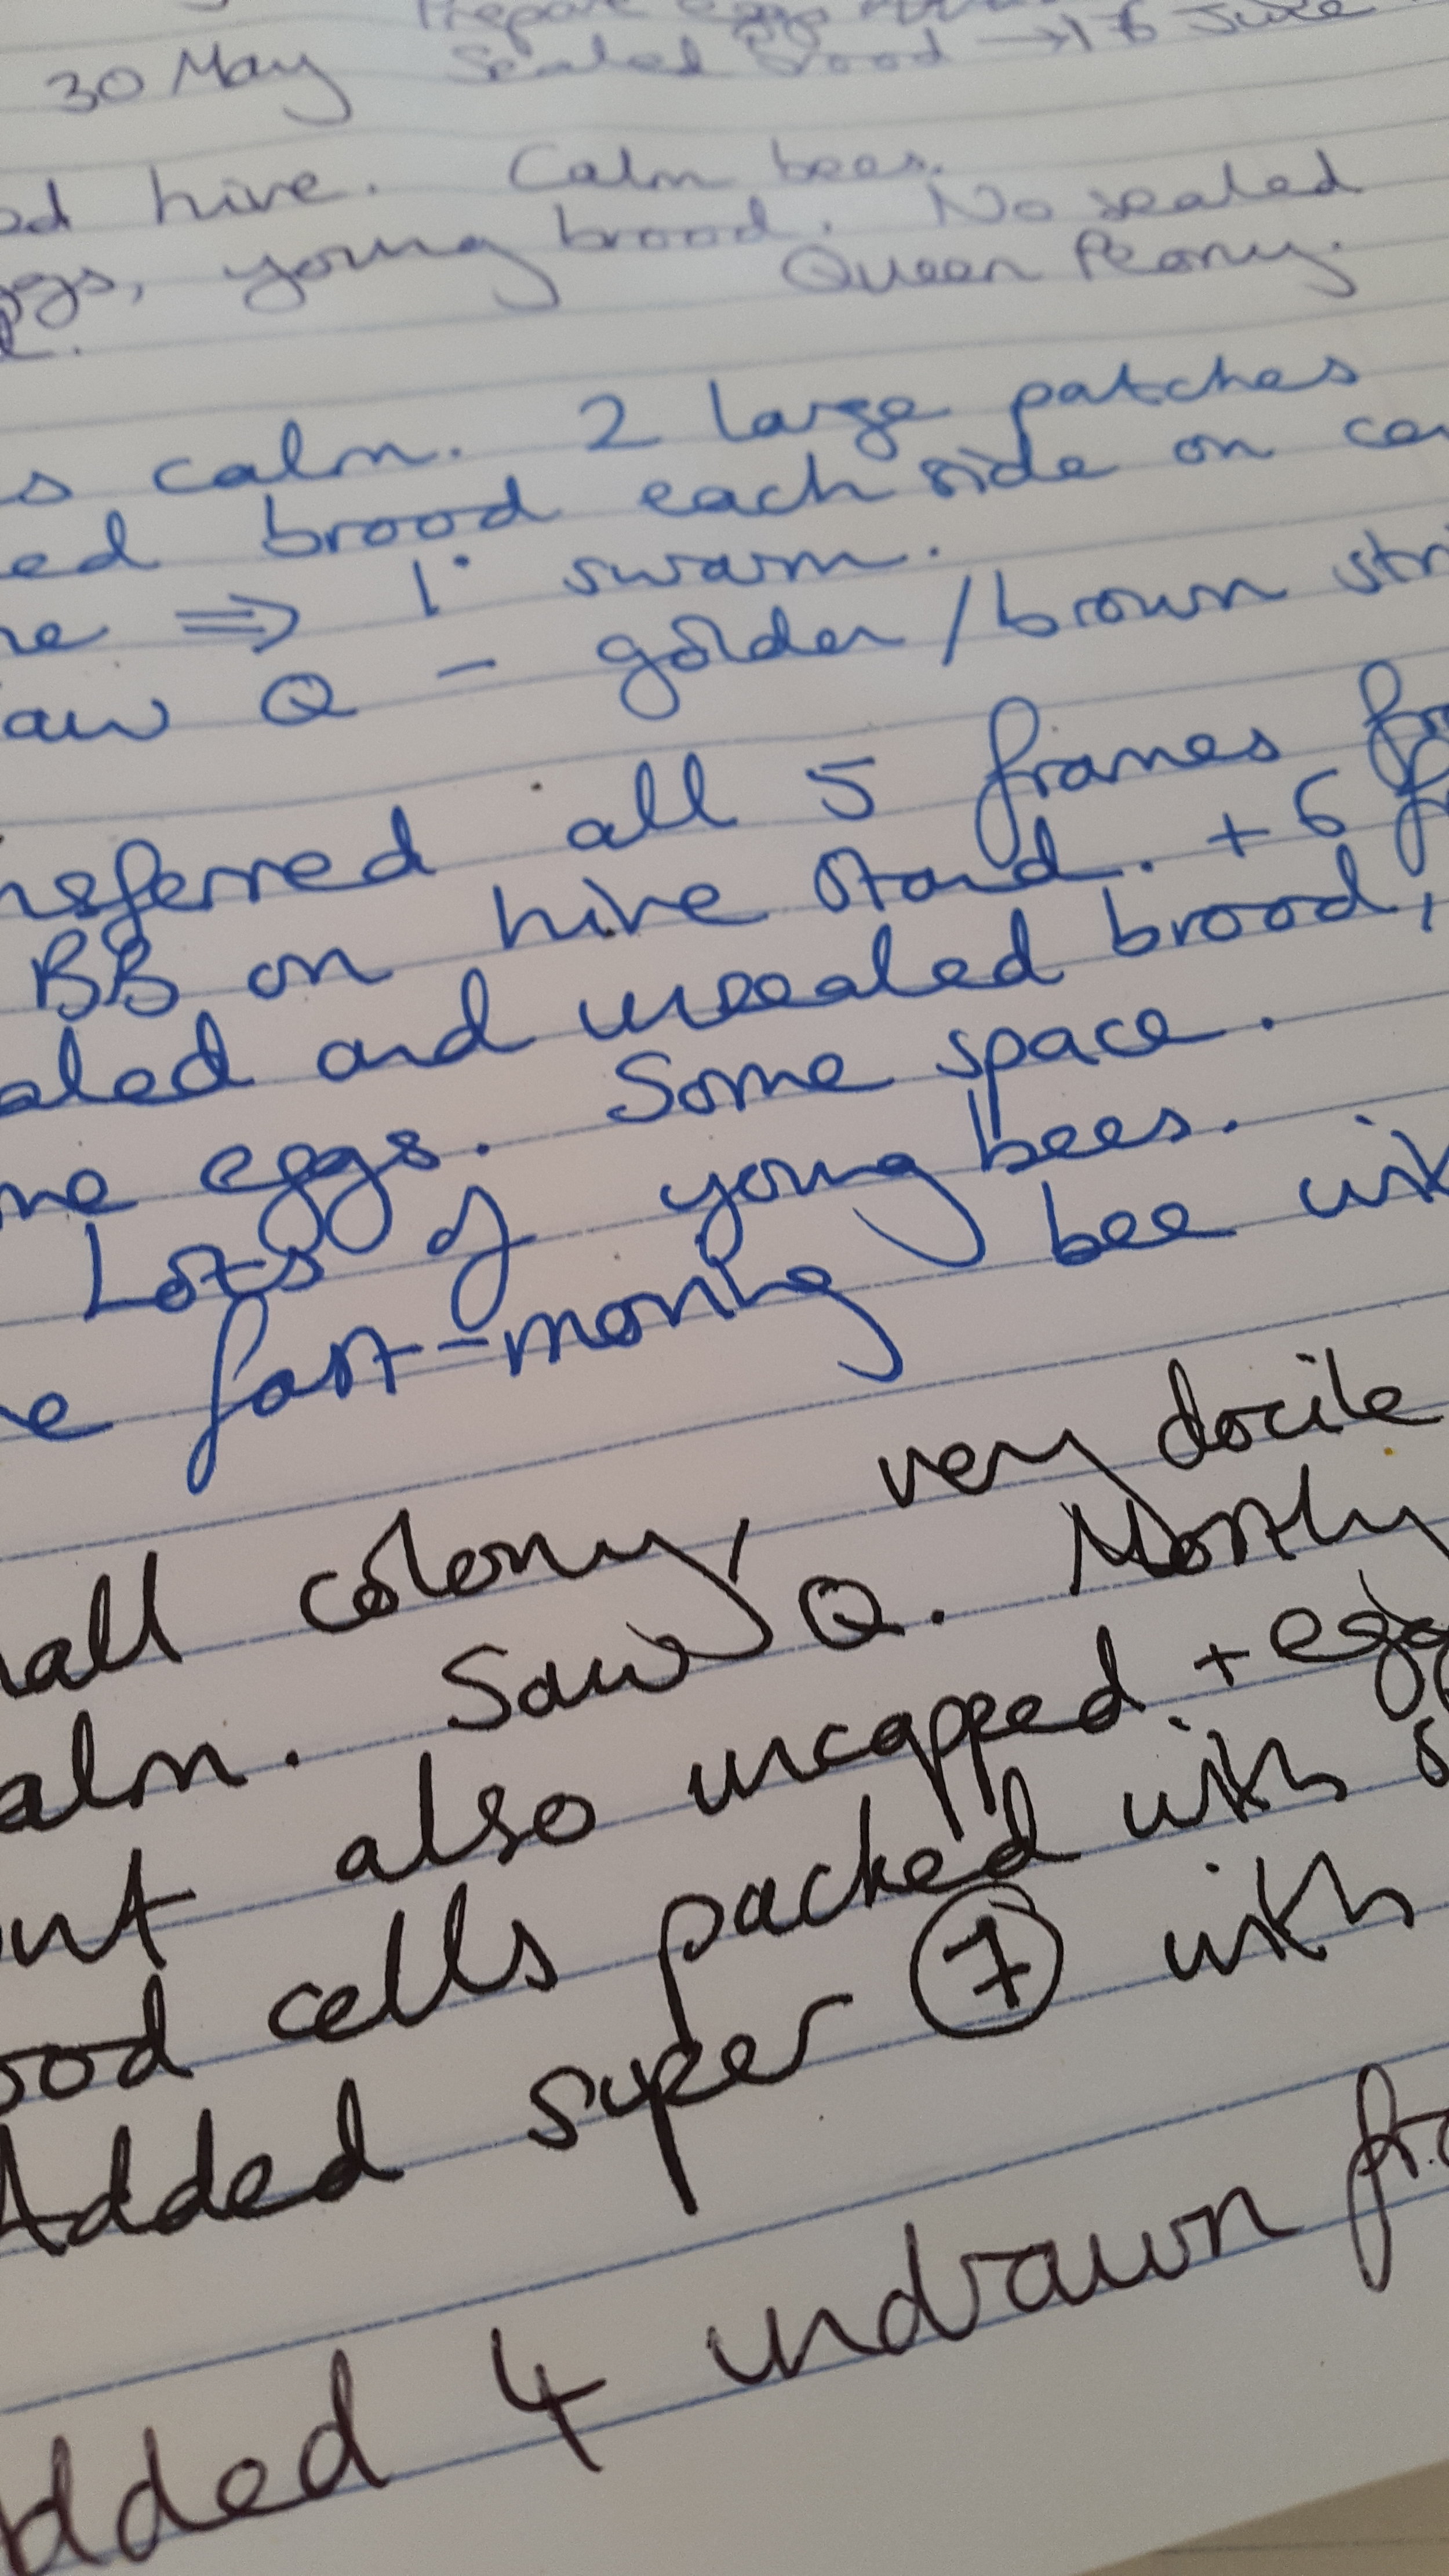 Prepare eggs
30 May Sealed brood → 16 June
hive. Calm bees.
young brood. No sealed
Queen Peony.
s calm. 2 large patches
ed brood each side on ce
ne ⇒ 1° swarm.
aw Q - golden/brown stri
nsferred all 5 frames fr
BB on hive stand. + 6 f
aled and unsealed brood,
me eggs. Some space.
Lots of young bees.
e fast-moving bee wit
mall colony, very docile
alm. Saw Q. Mostly
ut also uncapped + egg
ood cells packed with s
Added super ⑦ with
dded 4 undrawn fra